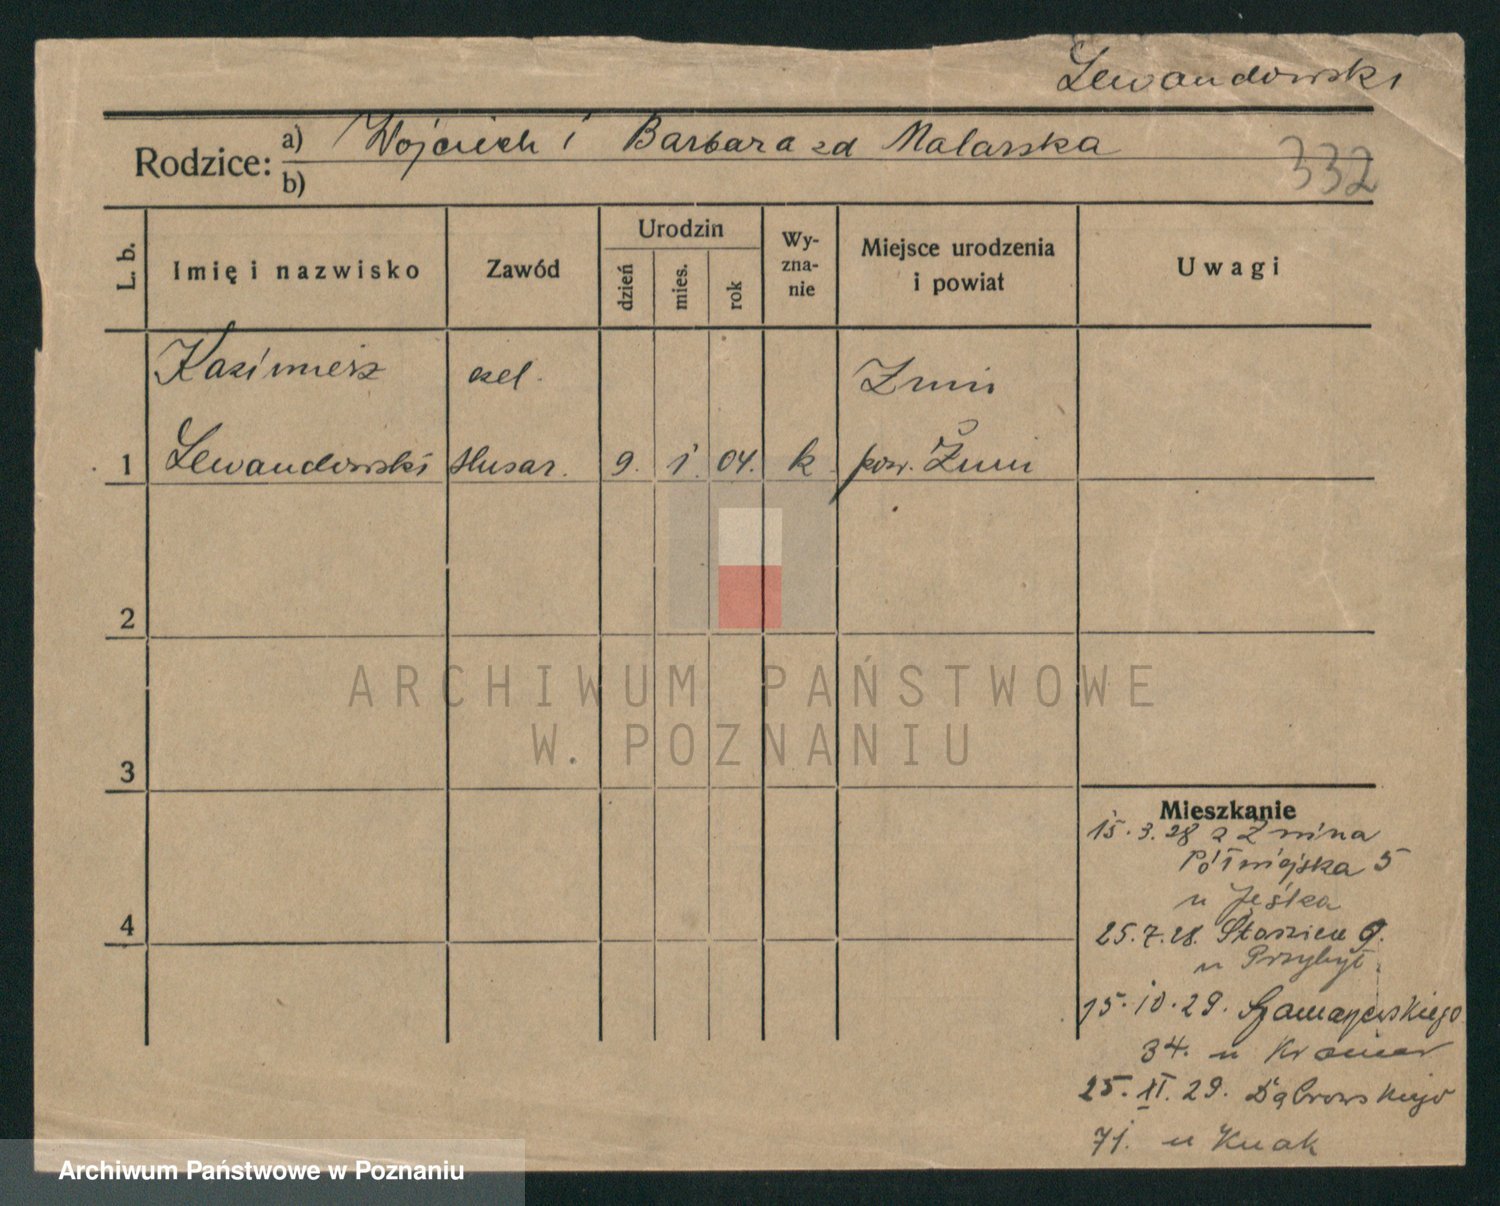 Lewandowski
Rodzice:
a) Wojciech i Barbara zd Malarska
b)
332
L. b.
Imię i nazwisko
Zawód
Urodzin
dzień
mies.
rok
Wy-
zna-
nie
Miejsce urodzenia
i powiat
Uwagi
Kazimierz
czel.
Żnin
1
Lewandowski
ślusar.
9.
1.
04.
k
pow. Żnin
2
3
4
ARCHIWUM PAŃSTWOWE
W. POZNANIU
Mieszkanie
15.3.28 z Żnina
Półwiejska 5
u Jęśka
25.7.28. Staszica 9.
u Przybył.
15.10.29. Szamarzewskiego
34. u Kramer
25.XI.29. Dąbrowskiego
71. u Knak
Archiwum Państwowe w Poznaniu